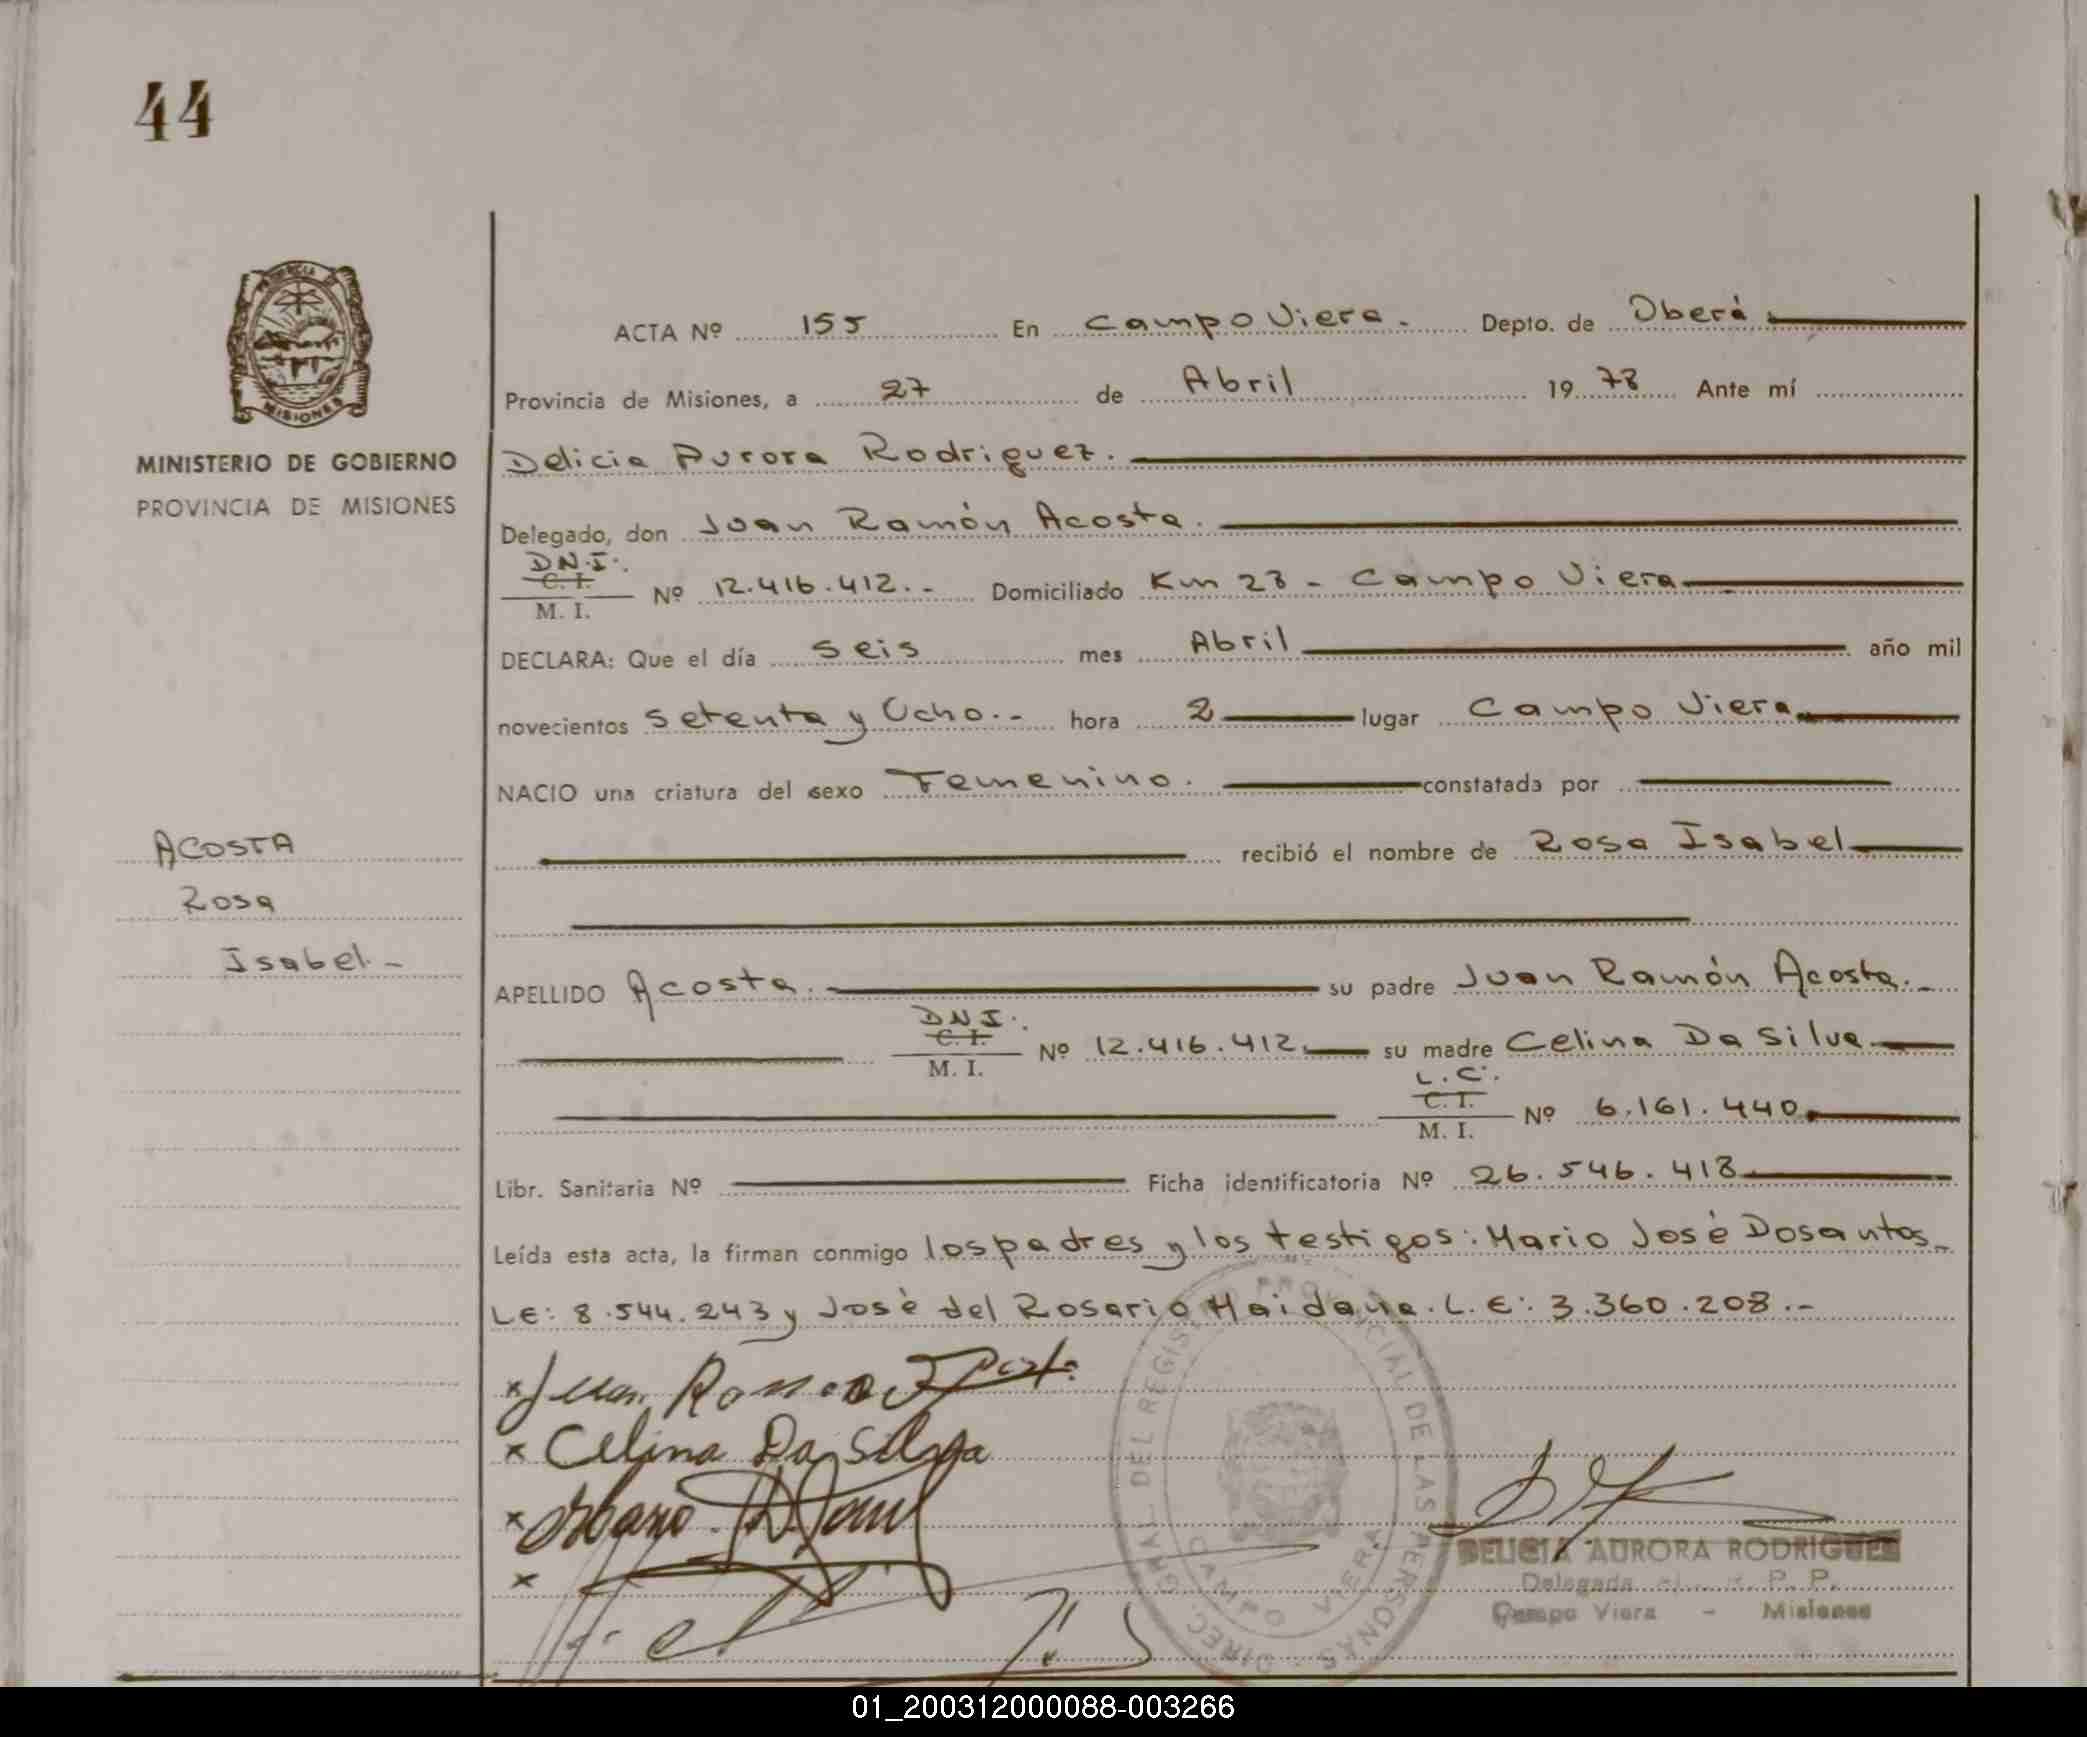 44
PROVINCIA DE
MISIONES
MINISTERIO DE GOBIERNO
PROVINCIA DE MISIONES
ACOSTA
Rosa
Isabel.-
ACTA Nº 155 En Campo Viera. Depto. de Oberá
Provincia de Misiones, a 27 de Abril 1978 Ante mí
Delicia Aurora Rodriguez.
Delegado, don Juan Ramón Acosta.
D.N.I.
C. I.
M. I. Nº 12.416.412.- Domiciliado Km 28 - Campo Viera
DECLARA: Que el día Seis mes Abril año mil
novecientos Setenta y Ocho.- hora 2 lugar Campo Viera
NACIO una criatura del sexo Femenino. constatada por
recibió el nombre de Rosa Isabel
APELLIDO Acosta. su padre Juan Ramón Acosta.-
D.N.I.
C. I.
M. I. Nº 12.416.412. su madre Celina Da Silva
L.C.
C. I.
M. I. Nº 6.161.440
Libr. Sanitaria Nº Ficha identificatoria Nº 26.546.418
Leída esta acta, la firman conmigo los padres y los testigos: Mario José Dosantos
LE: 8.544.243 y José del Rosario Maidana. L.E: 3.360.208.-
x Juan Ramon
x Celina Da Silva
x
x
DIREC. GRAL. DEL REGISTRO PROVINCIAL DE LAS PERSONAS
CAMPO VIERA
DELICIA AURORA RODRIGUEZ
Delegada R. P. P.
Campo Viera - Misiones
01_200312000088-003266